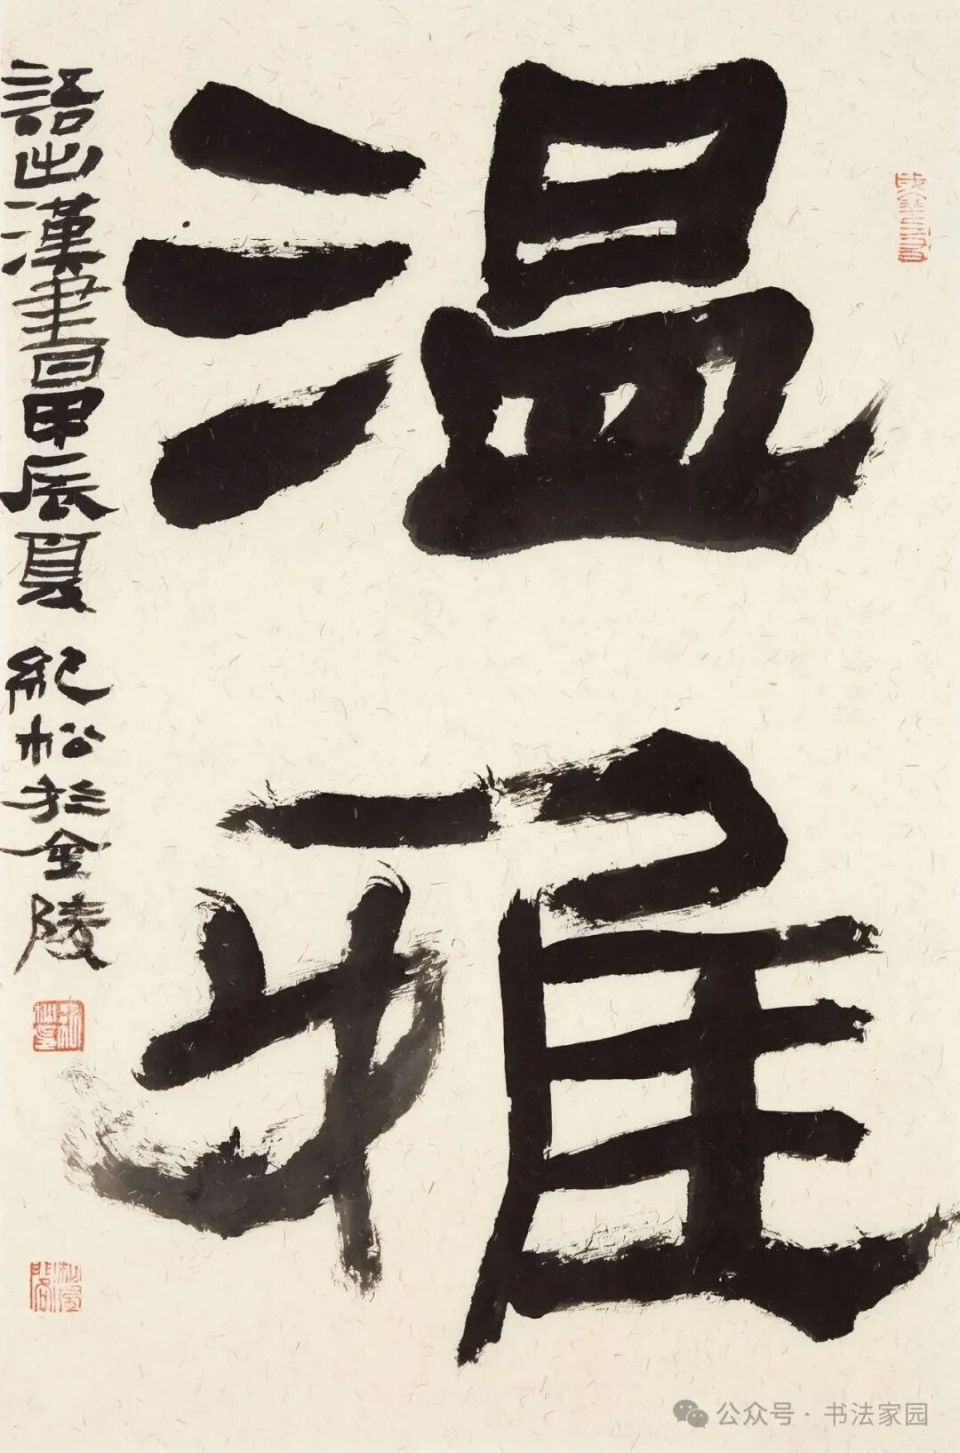 温雅
語出漢書 甲辰夏 紀松於金陵
公众号·书法家园